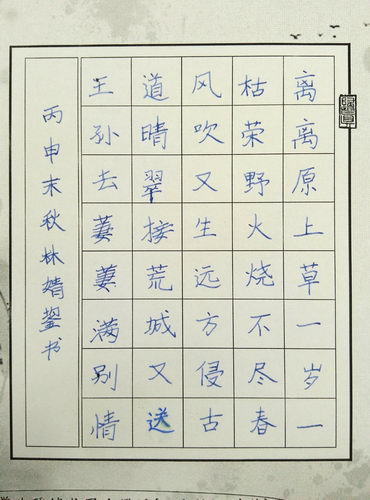 离离原上草一岁一
枯荣野火烧不尽春
风吹又生远方侵古
道晴翠接荒城又送
王孙去萋萋满别情
丙申末秋林婧蓥书